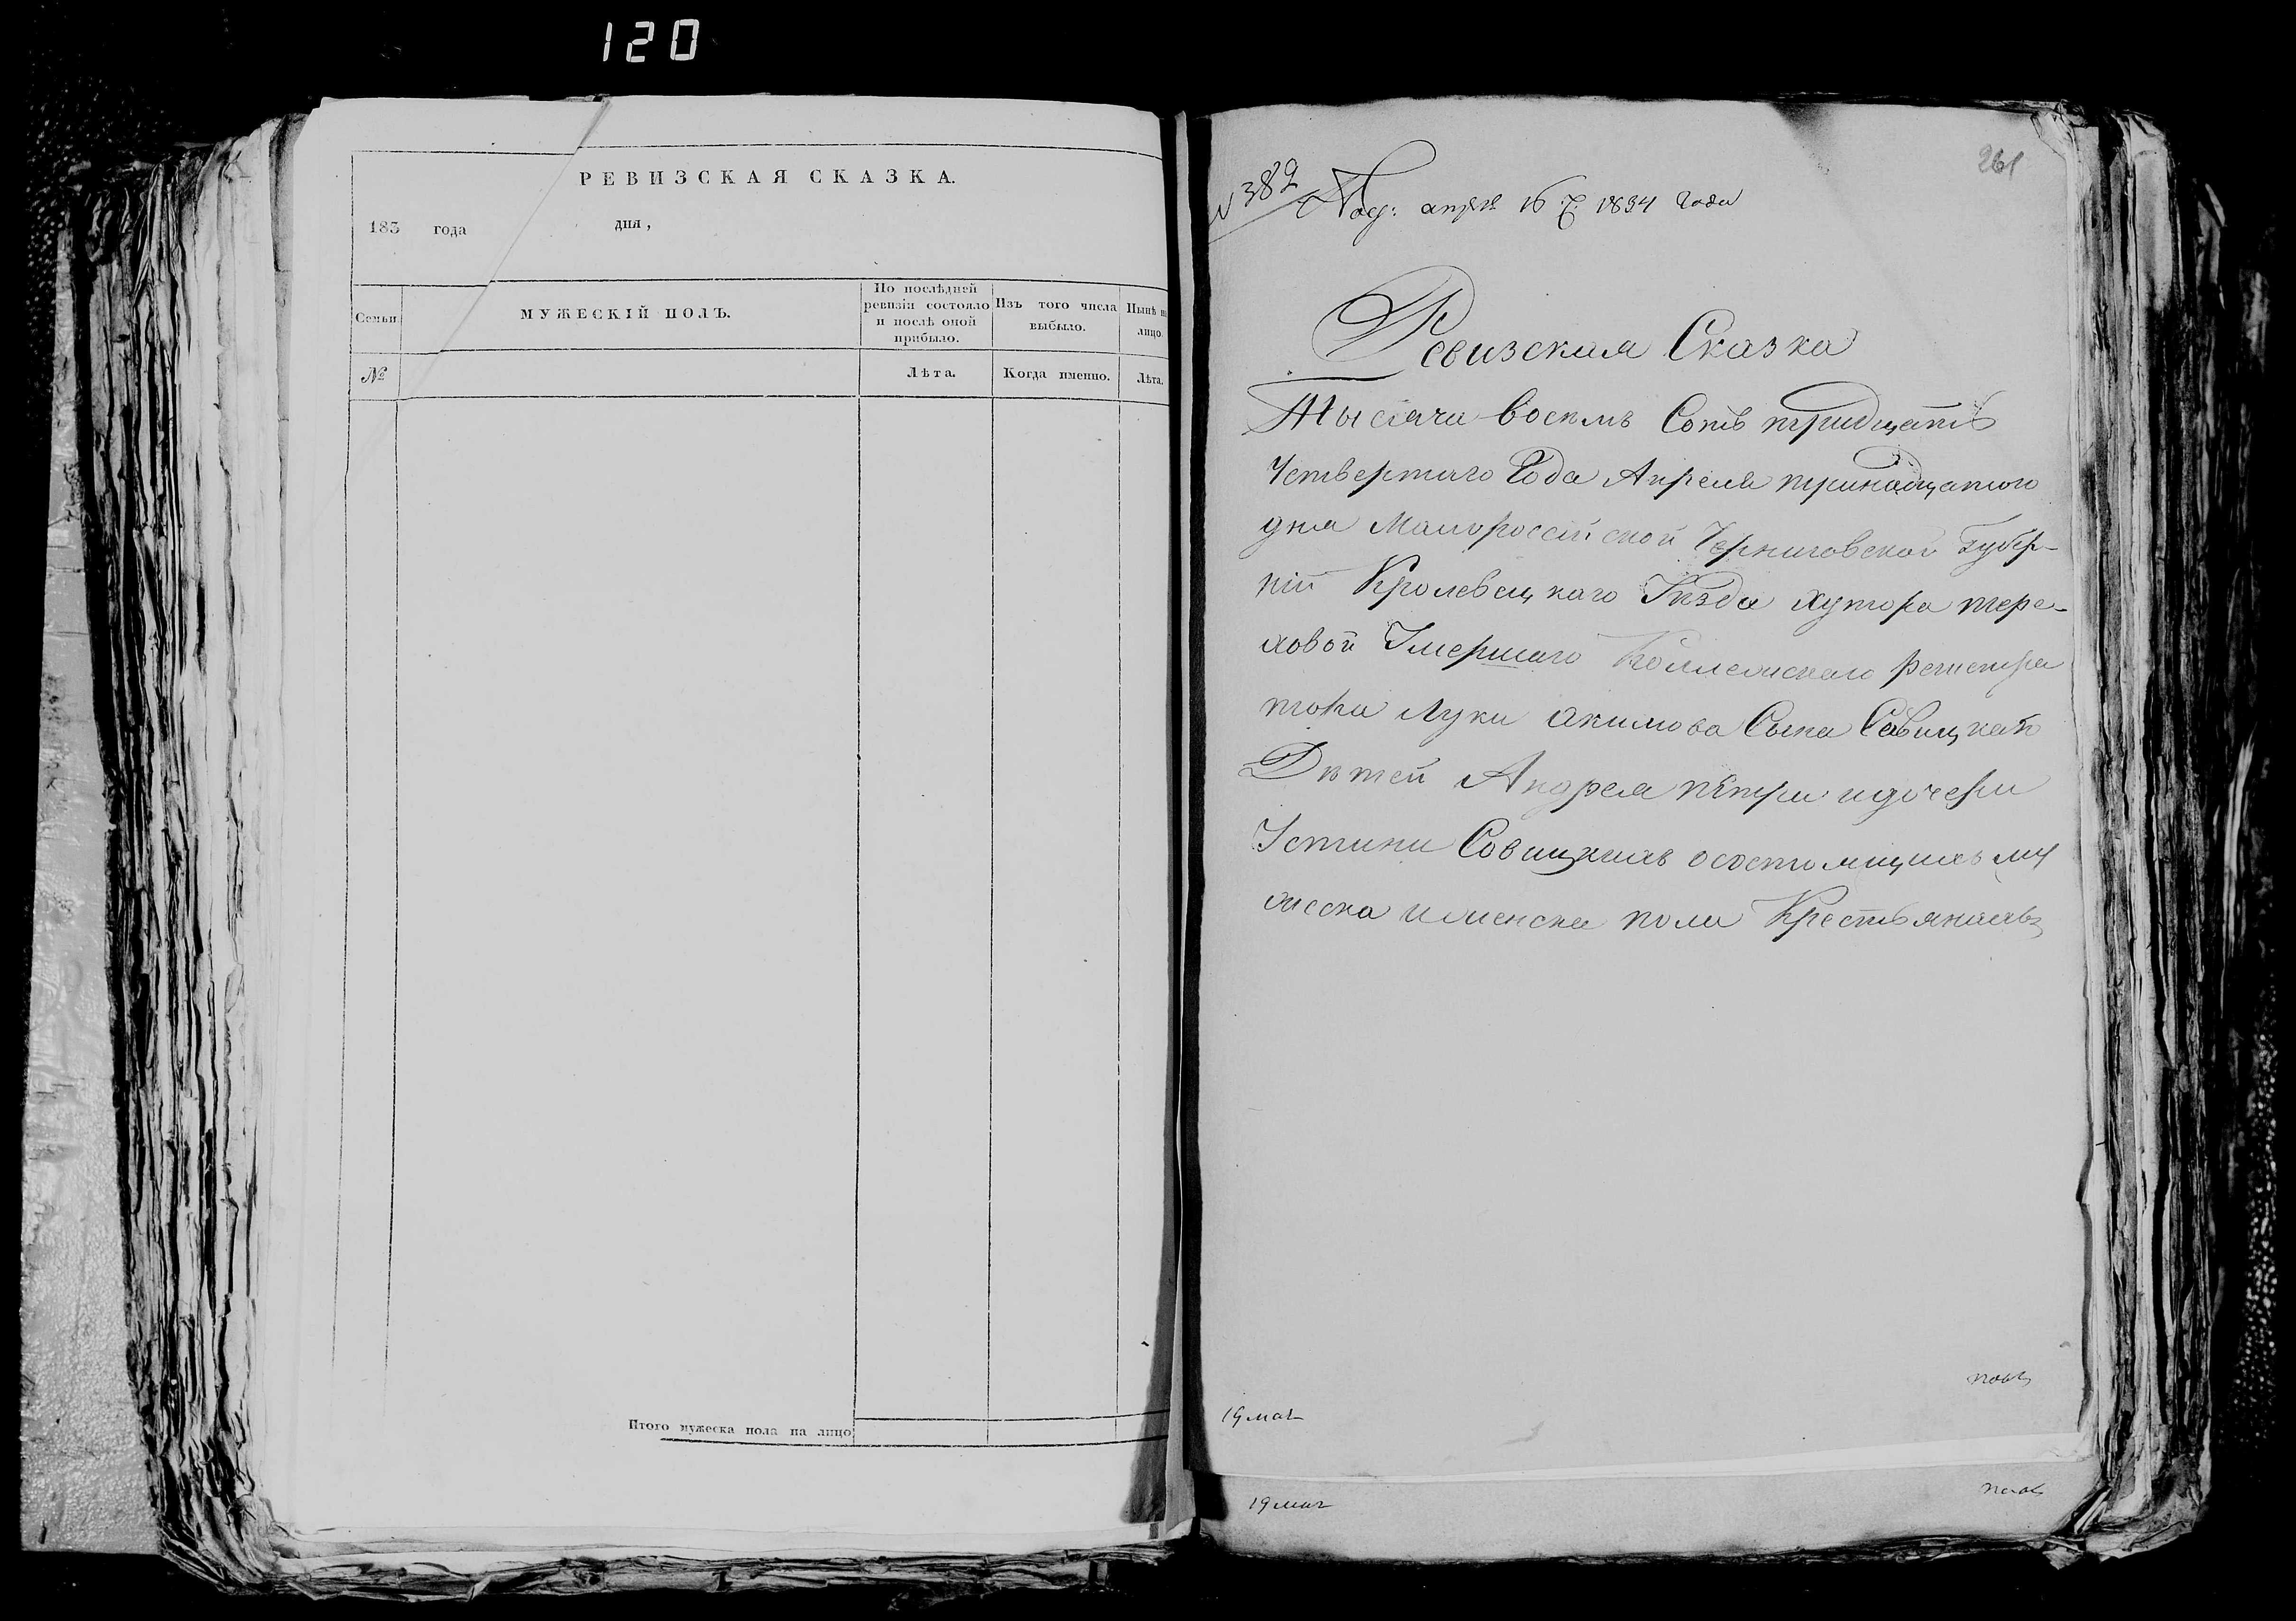 120
РЕВИЗСКАЯ СКАЗКА.
183 года дня,
Семьи
МУЖЕСКІЙ ПОЛЪ.
По послѣдней ревизіи состояло и послѣ оной прибыло.
Изъ того числа выбыло.
Нынѣ на лицо.
№
Лѣта.
Когда именно.
Лѣта.
Итого мужеска пола на лицо
261
N 382 Под: апреля 16 Ч. 1834 года
Ревизская Сказка
Тысяча восемь Сотъ тридцать
Четвертаго Года Апреля тринадцатого
дня Малороссійской Черниговской Губер-
ніи Кролевецкаго Уѣзда хутора тере-
ховой Умершаго Коллежскаго регистра
тора Луки Акимова Сына Савицкаго
Дѣтей Андрея петра и дочери
Устини Совицкихъ осостоящихъ му
жеска и женска пола Крестьянахъ
19 мая
19 мая